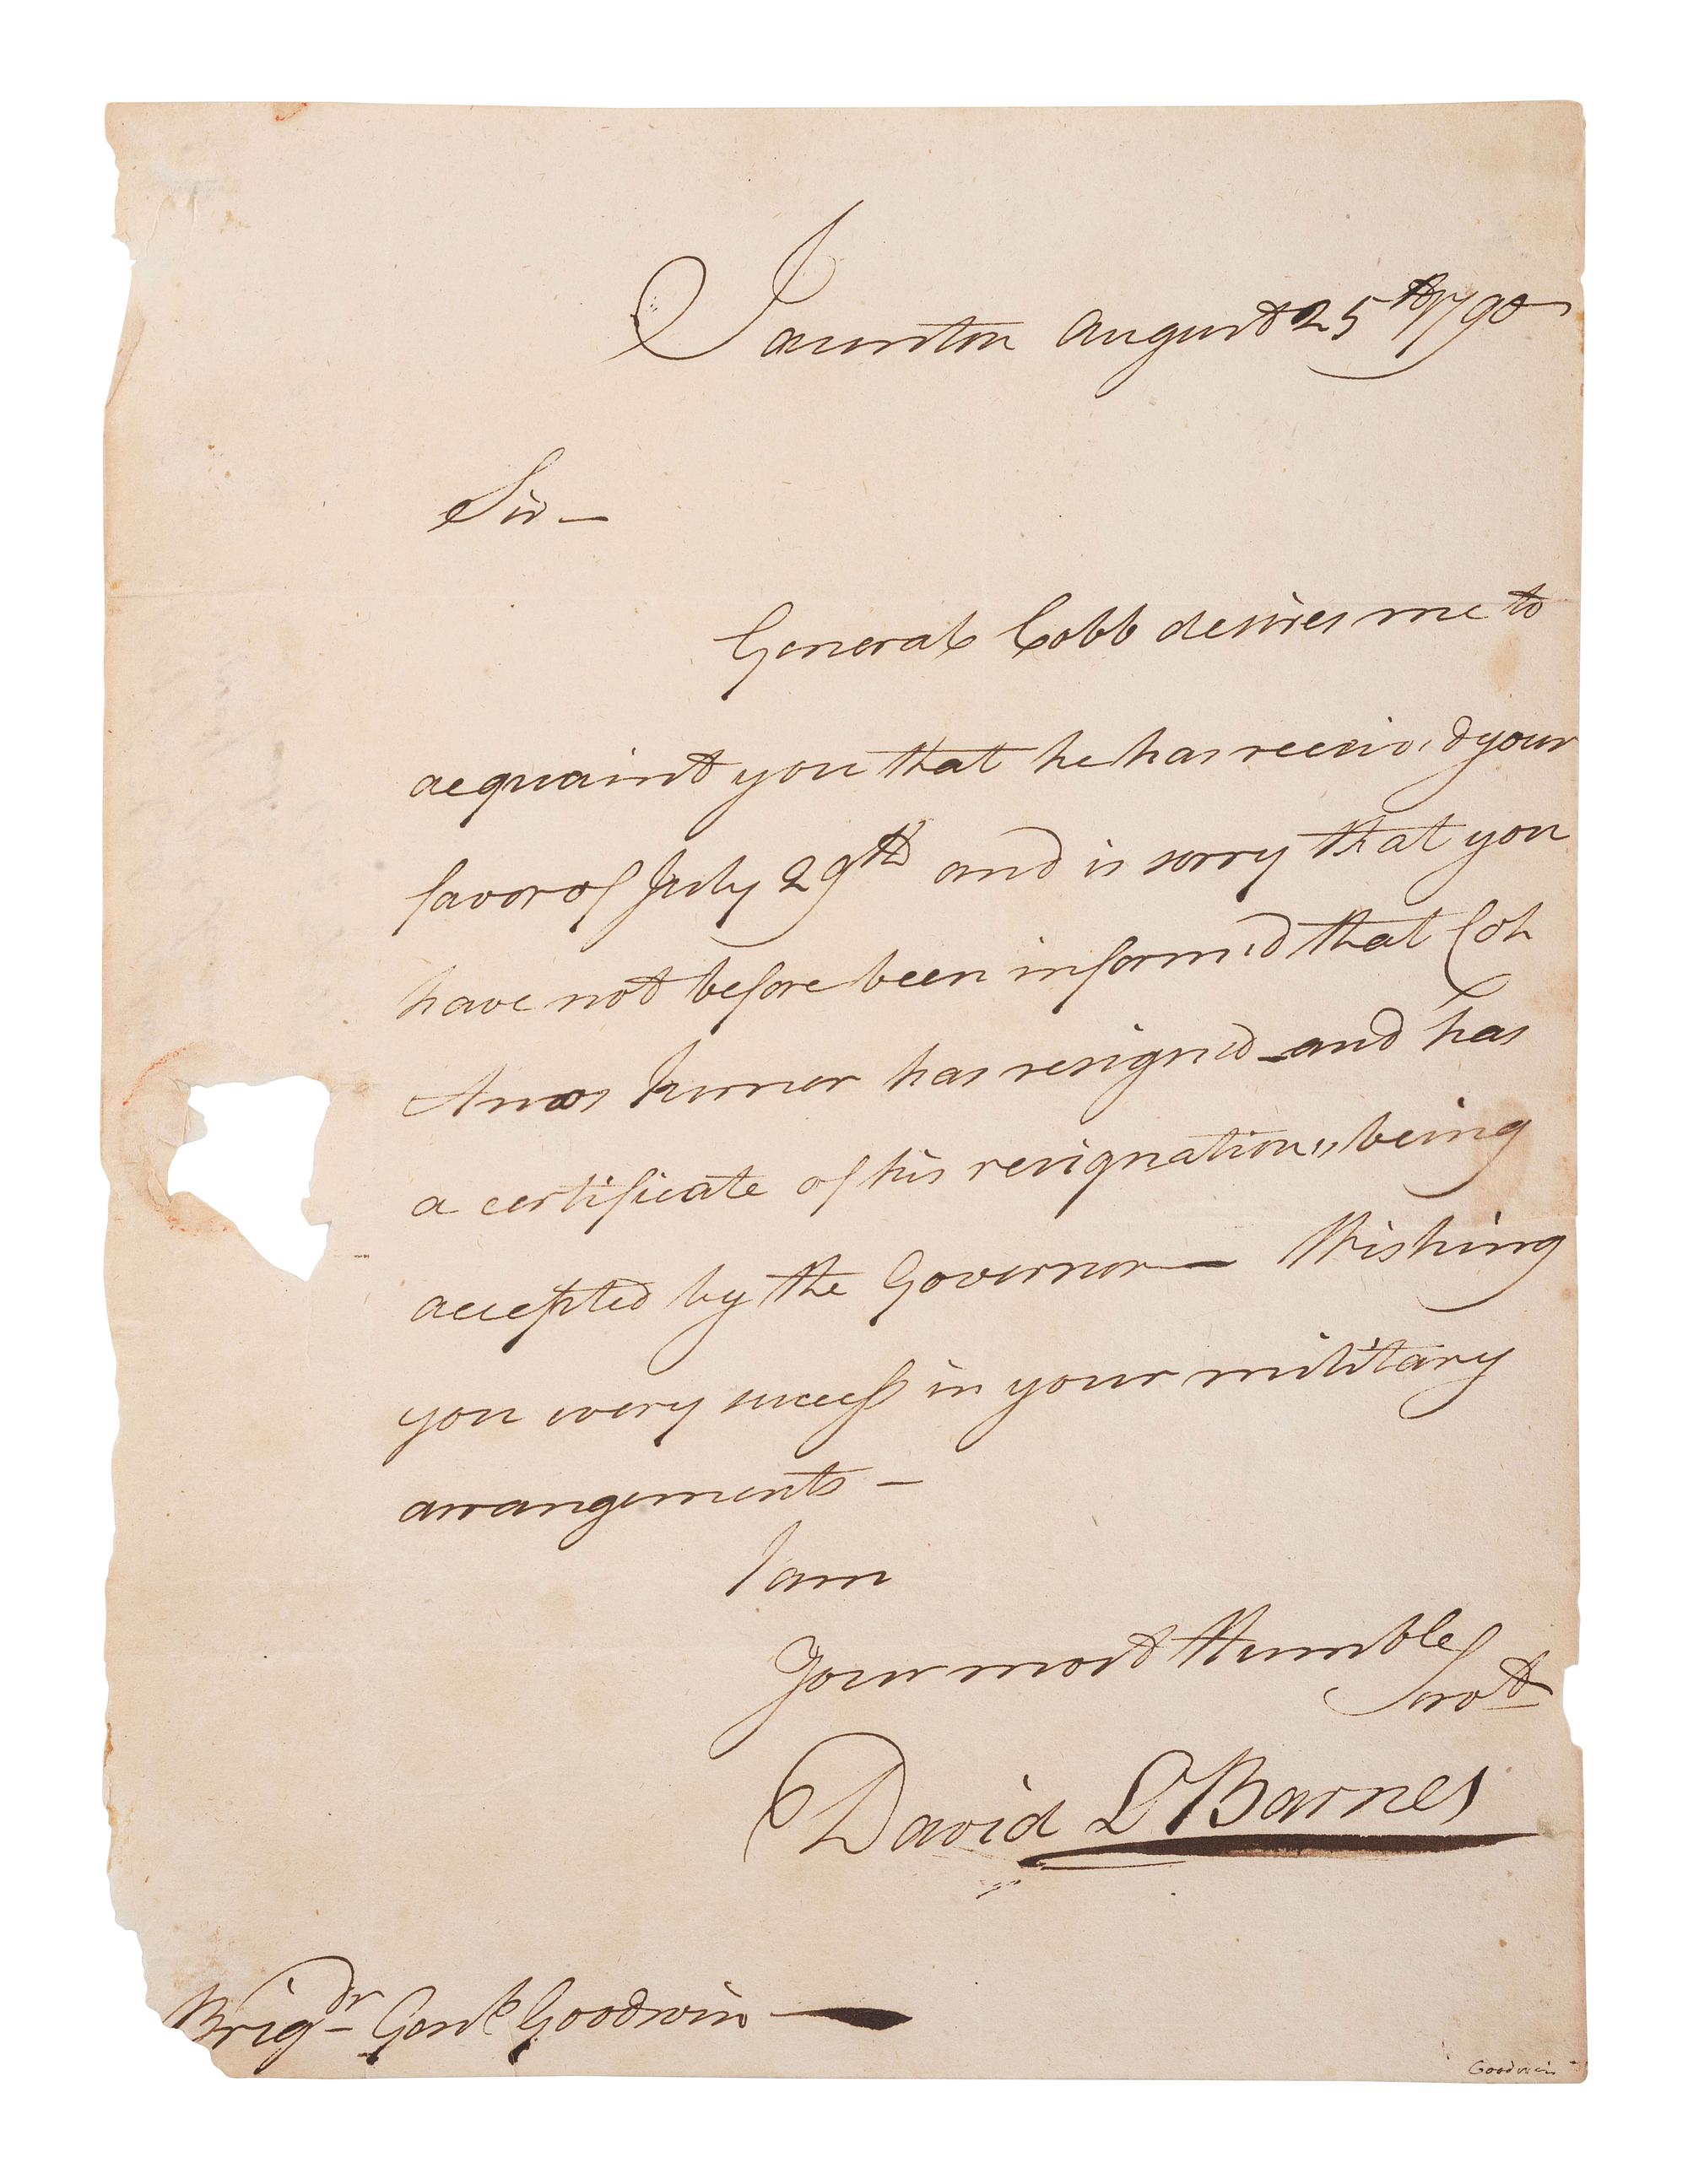 Taunton August 25th 1790
Sir —
General Cobb desires me to
acquaint you that he has receiv'd your
favor of July 29th and is sorry that you
have not before been inform'd that Col
has resign'd and has
a certificate of his resignation,, being
accepted by the Governor — Wishing
you every success in your military
arrangements —
I am
Your most Humble
Servt
David L Barnes
Brigdr Genl Goodwin —
Goodwin